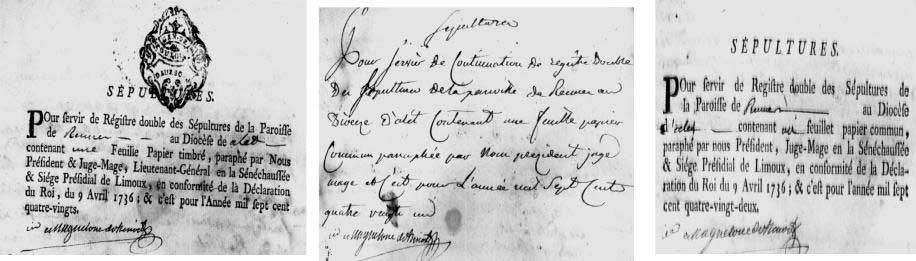 SÉPULTURES.
POur servir de Régistre double des Sépultures de la Paroisse
de Rennes au Diocèse de alet
contenant une Feuille Papier timbré, paraphé par Nous
Président & Juge-Mage, Lieutenant-Général en la Sénéchaussée
& Siége Présidial de Limoux, en conformité de la Déclaration
du Roi, du 9 Avril 1736 ; & c'est pour l'Année mil sept cent
quatre-vingts.
Sepultures
Pour servir de Continuation de registre Double
Des sepultures de la paroisse de Rennes au
Dioceze D'alet Contenant une feuille papier
Commun paraphée par Nous president juge
mage et C'est pour L'année mil Sept Cent
quatre vingt un
SÉPULTURES.
POur servir de Registre double des Sépultures de
la Paroisse de Rennes au Diocèse
d'alet contenant un feuillet papier commun,
paraphé par nous Président, Juge-Mage en la Sénéchaussée
& Siége Présidial de Limoux, en conformité de la Décla-
ration du Roi du 9 Avril 1736 ; & c'est pour l'année mil
sept cent quatre-vingt-deux.